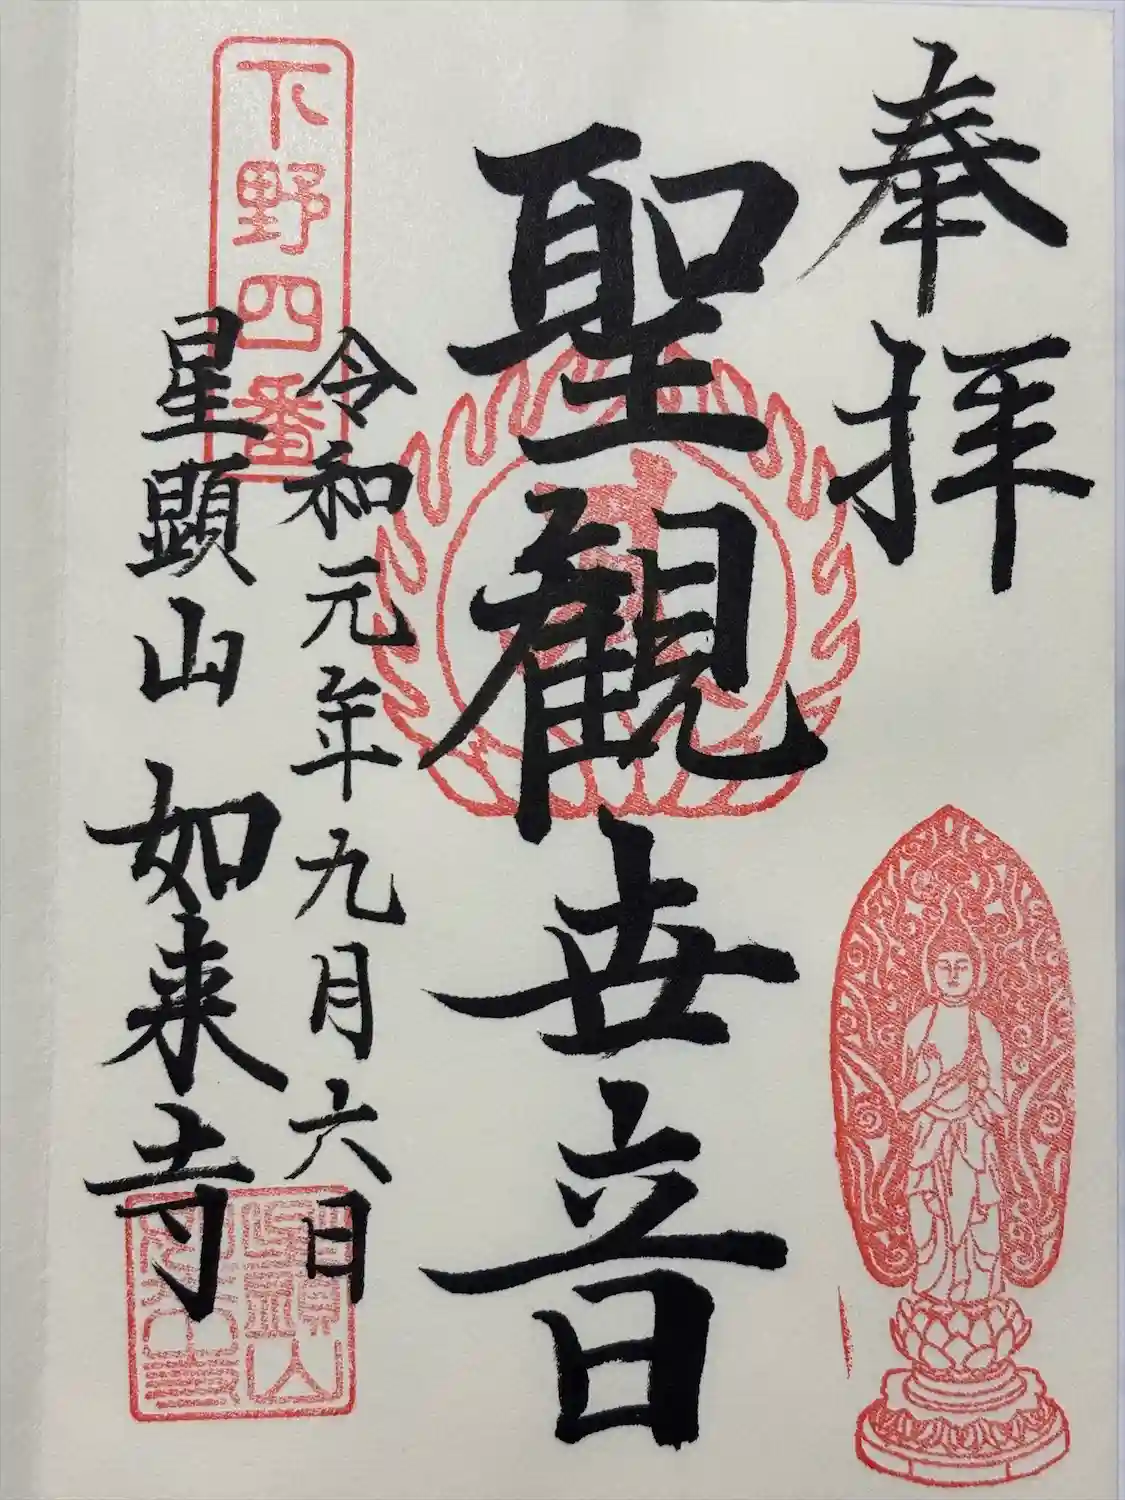 奉拝
聖観世音
令和元年九月六日
下野四番
星顕山 如来寺